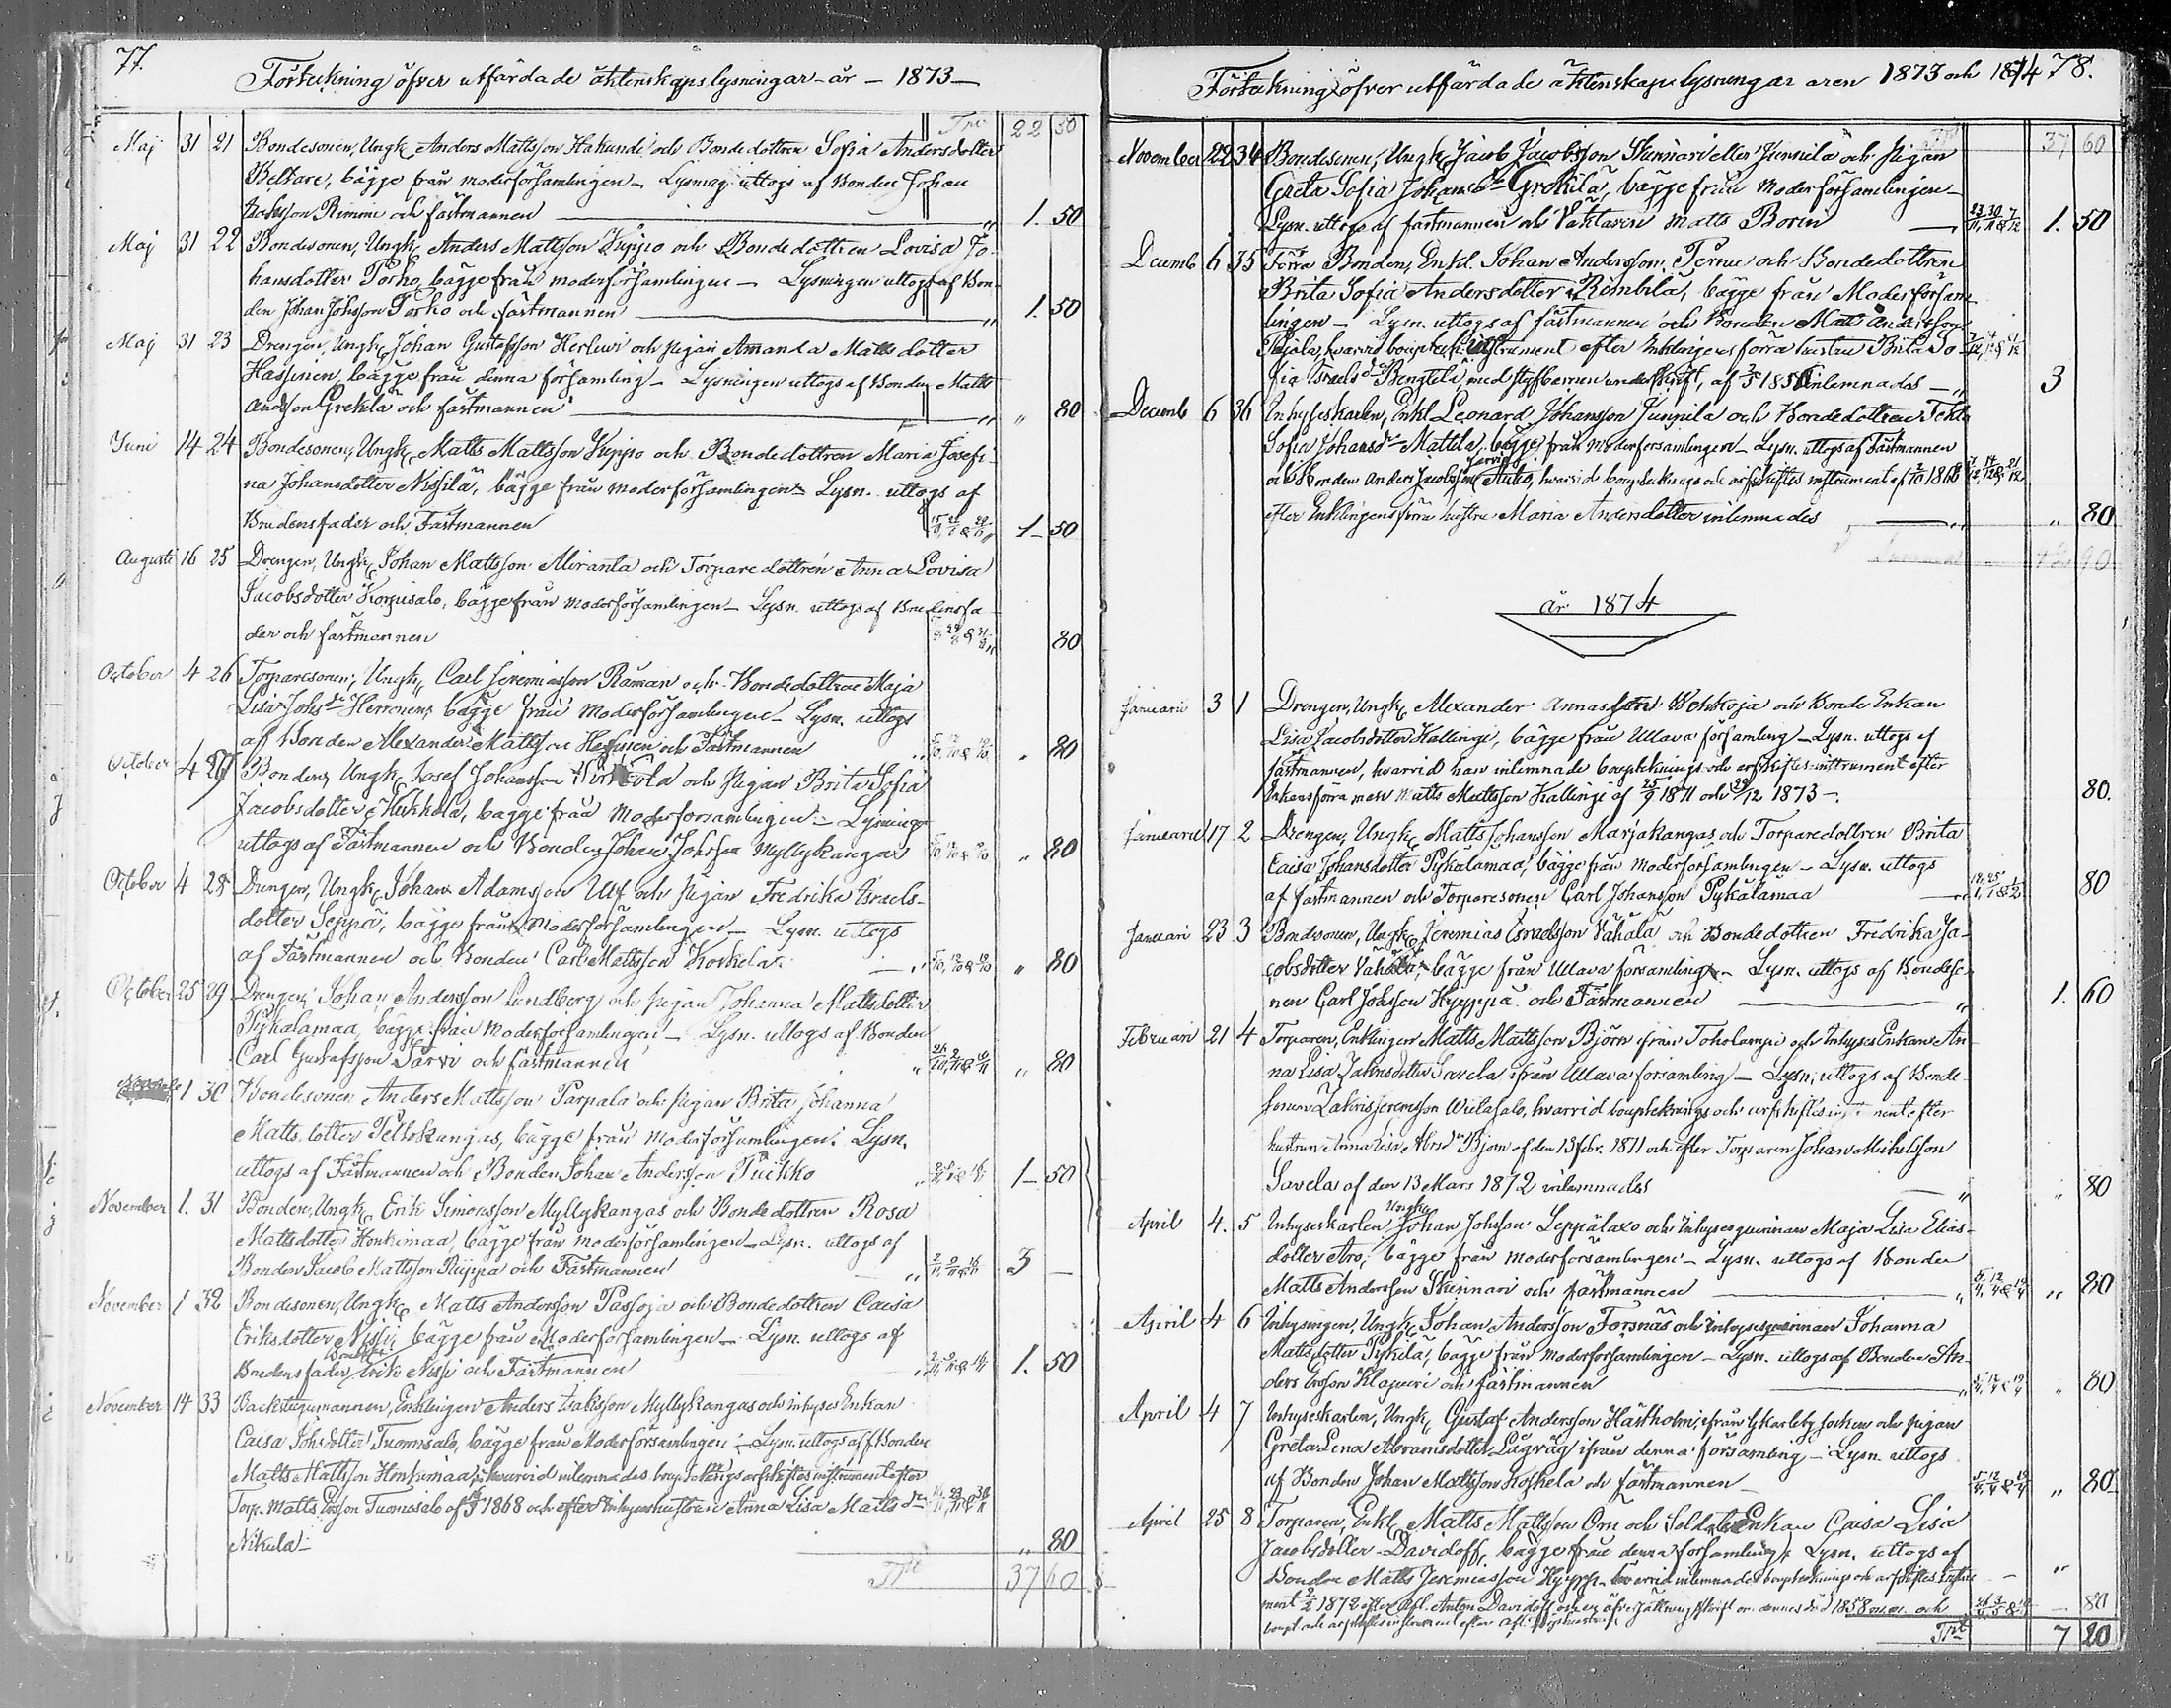 77.
Förteckning öfver utfärdade äktenskapslysningar år – 1873 –
Trt 22 50
Maj 31 21 Bondesonen, Ungk. Anders Mattsson Hakunde och Bondedottren Sofia Andersdotter
bägge från moderförsamlingen – Lysning uttogs af Bonden Johan
Rimmi och fästmannen 1. 50
Maj 31 22 Bondesonen, Ungk. Anders Mattsson Kuppo och Bondedottren Lovisa Jo-
hansdotter Torko, bägge från moderförsamlingen – Lysningen uttogs af Bon-
den Johan Johsson Torko och fästmannen 1. 50
Maj 31 23 Drengen, Ungk. Johan Gustafsson Herlevi och pigan Amanda Matts dotter
Hassinen, bägge från denna församling – Lysningen uttogs af Bonden Matts
Andsson Grekelä och fästmannen " 80
Juni 14 24 Bondesonen, Ungk. Matts Mattsson Kuppo och Bondedottren Maria Josefi-
na Johansdotter Nissilä, bägge från moderförsamlingen – Lysn. uttogs af
Brudensfader och Fästmannen 1 – 50
Augusti 16 25 Drengen, Ungk. Johan Mattsson Miranta och Torparedottren Anna Lovisa
Jacobsdotter Korpisalo, bägge från moderförsamlingen – Lysn. uttogs af Brudensfa-
der och fästmannen 80
October 4 26 Torparesonen, Ungk. Carl Jeremiasson Råman och Bondedottren Maja
Lisa Johsdr Herronen, bägge från moderförsamlingen – Lysn. uttogs
af Bonden Alexander Mattsson och Fästmannen " 80
October 4 27 Bonden, Ungk. Josef Johansson och Pigan Brita Sofia
Jacobsdotter Kukkola, bägge från moderförsamlingen – Lysning
uttogs af Fästmannen och Bonden Johan Johsson Myllykangas " 80
October 4 28 Drengen, Ungk. Johan Adamsson Ulf och Pigan Fredrika Israels-
dotter Seppä, bägge från moderförsamlingen – Lysn. uttogs
af Fästmannen och Bonden Carl Mattsson Korkela " 80
October 25 29 Drengen, Johan Andersson Lundberg och pigan Johanna Mattsdotter
Pykälämaa, bägge från moderförsamlingen – Lysn. uttogs af Bonden
Carl Gustafsson Järvi och fästmannen " 80
1 30 Bondesonen Anders Mattsson Parpala och pigan Brita Johanna
Matts dotter Peltokangas, bägge från moderförsamlingen. Lysn.
uttogs af Fästmannen och Bonden Johan Andersson Puikko 1 – 50
November 1. 31 Bonden, Ungk. Erik Simonsson Myllykangas och Bondedottren Rosa
Mattsdotter Honkimaa, bägge från moderförsamlingen – Lysn. uttogs af
Bonden Jacob Mattsson Riippa och Fästmannen 3 –
November 1 32 Bondesonen, Ungk. Matts Andersson Passoja och Bondedottren Caisa
Eriksdotter Nissi, bägge från Moderförsamlingen – Lysn. uttogs af
Brudens fader Bonden Erik Nissi och Fästmannen 1. 50
November 14 33 Backstugumannen, Enklingen Anders Isaksson Myllykangas och inhyses Enkan
Caisa Johsdotter Tuomisalo, bägge från Moderförsamlingen – Lysn. uttogs af Bonden
Matts Mattsson Honkimaa, hvarvid inlemnades bouptecknings arfskiftes instrument efter
Torp. Matts Ersson Tuomisalo af 1868 och efter Inhyseshustrun Anna Lisa Matts dr
Nikula – " 80
Trt 37 60
Förteckning öfver utfärdade äktenskapslysningar åren 1873 och 1874 78.
Trt 37 60
November 22 34 Bondesonen, Ungk. Jacob Jacobsson Skunnari eller Junnila och Pigan
Greta Sofia Johansdr Grekilä, bägge från Moderförsamlingen –
Lysn. uttogs af fästmannen och Vaktaren Matts Boren 23/11, 30/11 & 7/12 1. 50
Decemb 6 35 Förra Bonden, Enkl. Johan Andersson Pernu och Bondedottren
Brita Sofia Andersdotter Rimbilä, bägge från Moderförsam-
lingen – Lysn. uttogs af fästmannen och Bonden Matts Andersson
hvarvid bouptek. instrument efter Enklingens förra hustru Brita So-
fia Israelsdr Bengtila, med styfbarnen underskrift, af inlemnades – 3
Decemb 6 36 Inhyseskarlen, Enkl. Leonard Johansson Junnila och Bondedottren Tekla
Sofia Johansdr Mattila, bägge från Moderförsamlingen – Lysn. uttogs af Fästmannen
och Bonden Anders Jacobsson Järvi Autio, hvarvid bouptecknings och arfskiftes instrument af 1868 7/12, 14/12 & 21/12
efter Enklingens förra hustru Maria Andersdotter inlemnades " 80
Summa 42 90
år 1874
Januari 3 1 Drengen, Ungk. Alexander Annasson Wehkoja och Bonde Enkan
Lisa Jacobsdotter Kallinge, bägge från Ullava församling – Lysn. uttogs af
fästmannen, hvarvid han inlemnade bouptecknings och arfskiftes instrument efter
Enkans förra man Matts Mattsson Kallinge af 25/9 1871 och 29/12 1873 –. 80.
Januari 17 2 Drengen, Ungk. Matts Johansson Marjakangas och Torparedottren Brita
Caisa Johansdotter Pykälämaa, bägge från moderförsamlingen – Lysn. uttogs
af fästmannen och Torparesonen Carl Johansson Pykälämaa 18/1, 25/1 & 1/2 80
Januari 23 3 Bondesonen, Ungk. Jeremias Israelsson Vähälä och Bondedottren Fredrika Ja-
cobsdotter Vähälä, bägge från Ullava församling – Lysn. uttogs af Bondeso-
nen Carl Johsson Hyyppä och Fästmannen 1. 60
Februari 21 4 Torparen, Enklingen Matts Mattsson Björn ifrån Toholampi och Inhyses Enkan An-
na Lisa Johansdotter Savela ifrån Ullava församling – Lysn. uttogs af Bonde-
sonen Zakris Jeremsson Wielasalo, hvarvid bouptecknings och arfskiftes instrument efter
hustrun Anna Lisa Abrsdr Björn af den 13 febr. 1871 och efter Torparen Johan Mickelsson
Savela af den 13 Mars 1872 inlemnades " 80
April 4. 5 Inhyseskarlen Ungk. Johan Johsson Leppälaxo och Inhyses qvinnan Maja Lisa Elias-
dotter Aro, bägge från moderförsamlingen – Lysn. uttogs af Bonden
Matts Andersson Skunnari och fästmannen 5/4, 12/4 & 19/4 " 80
April 4 6 Inhysingen, Ungk. Johan Andersson Forsnäs och inhysesqvinnan Johanna
Mattsdotter Pykilä, bägge från moderförsamlingen – Lysn. uttogs af Bonden An-
ders Ersson Klapuri och fästmannen 5/4, 12/4 & 19/4 " 80
April 4 7 Inhyseskarlen, Ungk. Gustaf Andersson Hästholm, ifrån Gkarleby socken och pigan
Greta Lena Abramsdotter Lågväg ifrån denna församling – Lysn. uttogs
af Bonden Johan Mattsson Koskela och fästmannen – 5/4, 12/4 & 19/4 " 80
April 25 8 Torparen, Enkl. Matts Mattsson Orn och Soldats Enkan Caisa Lisa
Jacobsdotter Davidoff, bägge från denna församling, Lysn. uttogs af
Bonden Matts Jeremiasson Hyypp. hvarvid inlemnades bouptecknings och arfskiftes instru-
ment 1872 efter afl. Anton Davidoff 1858 och – 80
Trt 7 20